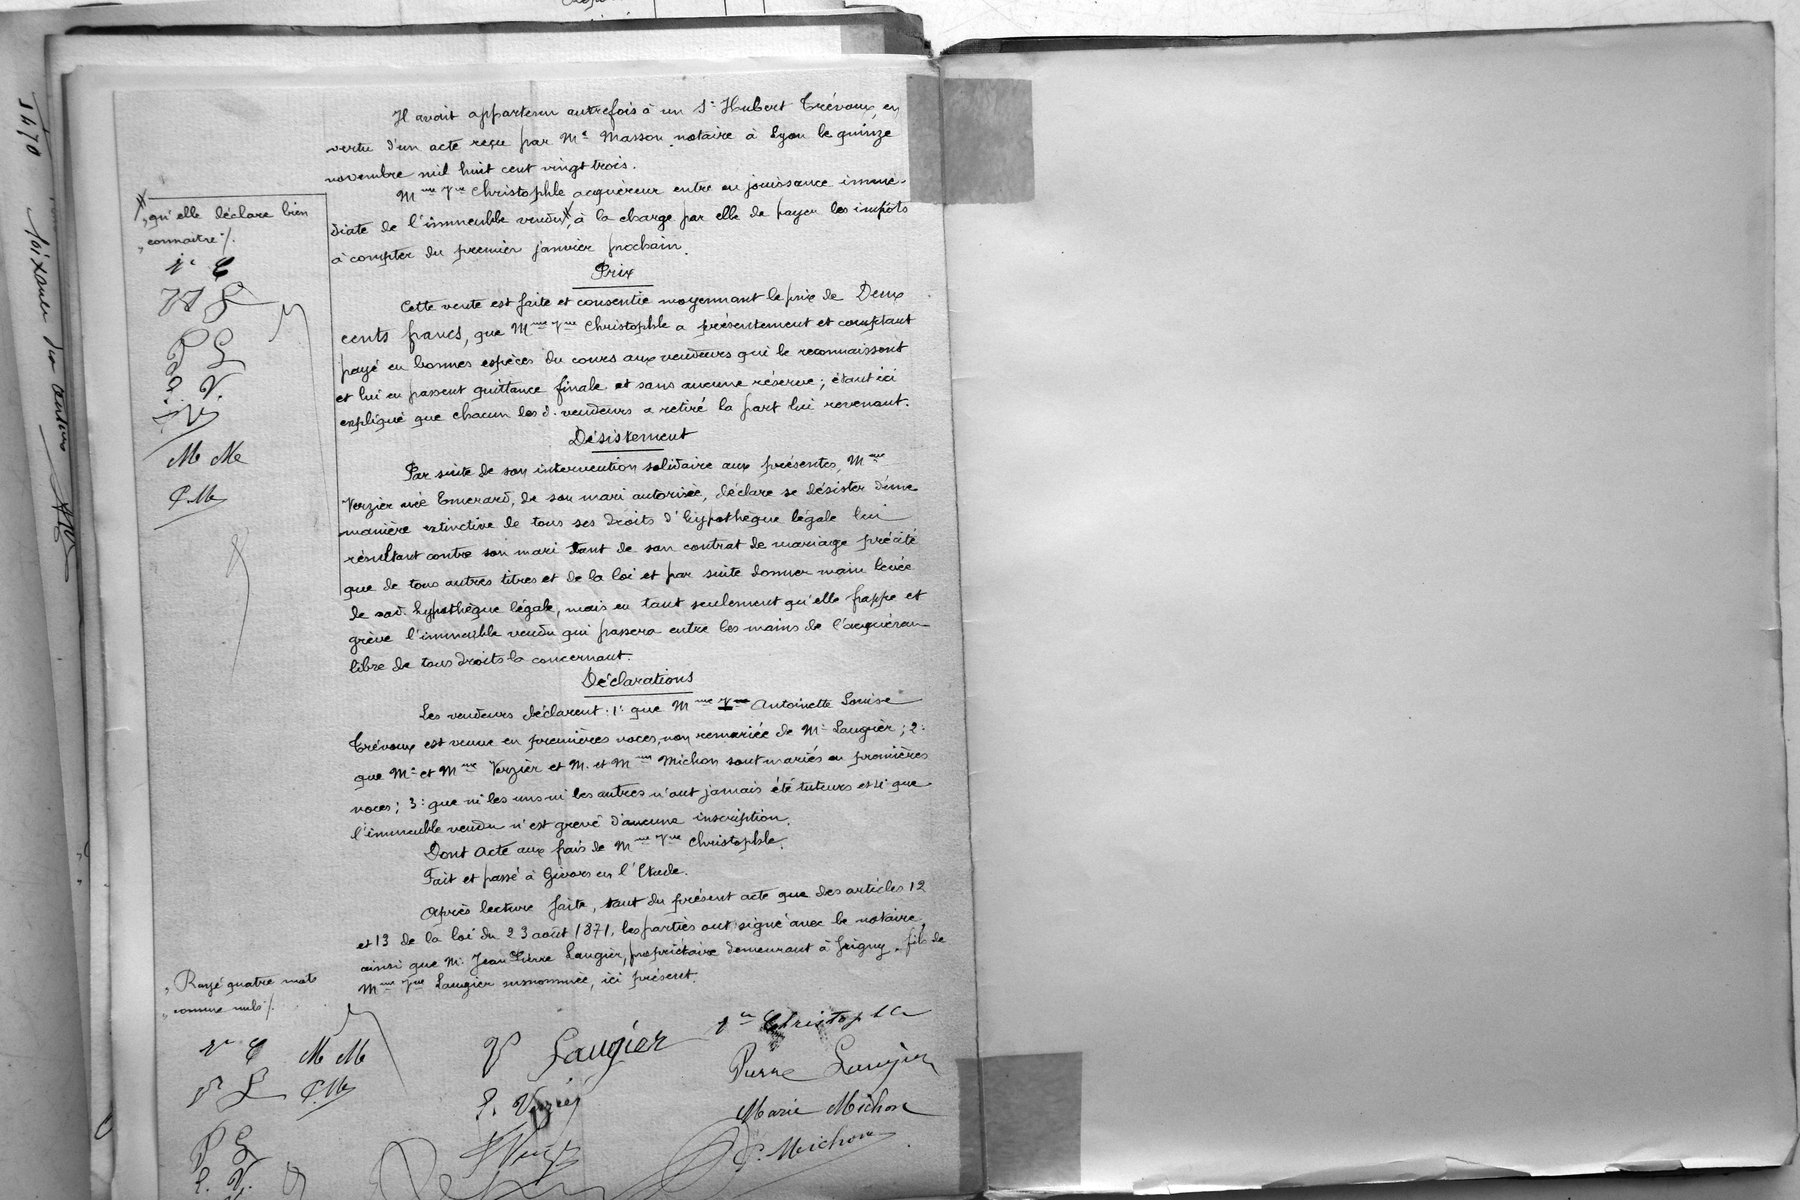 Il avait appartenu autrefois à un Sr Hubert Trévoux, en
vertu d'un acte reçu par Me Masson, notaire à Lyon le quinze
novembre mil huit cent vingt trois.
Mme Vve Christophle acquéreur entre en jouissance immé-
diate de l'immeuble vendu, à la charge par elle de payer les impôts
à compter du premier janvier prochain.
Prix
Cette vente est faite et consentie moyennant le prix de Deux
cents francs, que Mme Vve Christophle a présentement et comptant
payé en bonnes espèces du cours aux vendeurs qui le reconnaissent
et lui en passent quittance finale et sans aucune réserve; étant ici
expliqué que chacun des d. vendeurs a retiré la part lui revenant.
Désistement
Par suite de son intervention solidaire aux présentes, Mme
Verzier née Emerard, de son mari autorisée, déclare se désister d'une
manière extinctive de tous ses droits d'hypothèque légale lui
résultant contre son mari tant de son contrat de mariage précité
que de tous autres titres et de la loi et par suite donner main levée
de sad. hypothèque légale, mais en tant seulement qu'elle frappe et
grève l'immeuble vendu qui passera entre les mains de l'acquéreur
libre de tous droits la concernant.
Déclarations
Les vendeurs déclarent: 1° que Mme Vve Antoinette Louise
Trévoux est veuve en premières noces, non remariée de Mr Laugier; 2°
que Mr et Mme Verzier et M. et Mme Michon sont mariés en premières
noces; 3° que ni les uns ni les autres n'ont jamais été tuteurs et 4° que
l'immeuble vendu n'est grevé d'aucune inscription.
Dont acte aux frais de Mme Vve Christophle.
Fait et passé à Givors en l'Etude.
Après lecture faite, tant du présent acte que des articles 12
et 13 de la loi du 23 août 1871, les parties ont signé avec le notaire,
ainsi que Mr Jean Pierre Laugier, propriétaire demeurant à Grigny, fils de
Mme Vve Laugier susnommée, ici présent.
Vve Christophle
V Laugier
Pierre Laugier
P. Verzier
Marie Michon
C. Michon
qu'elle déclare bien
connaître ./.
Ve C
P L
P. V.
M M
C. M
Rayé quatre mots
comme nuls ./.
Ve C M M
V L C. M
P L
P. V.